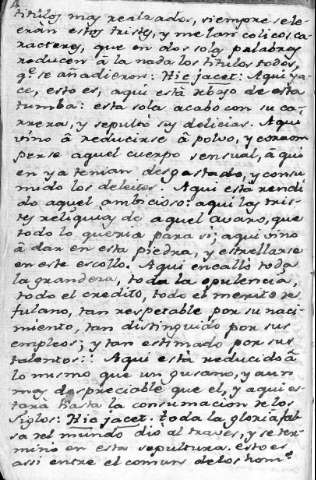 titulos mas realzados, siempre se le-
eràn estos tristes, y melancolicos, ca-
racteres, que en dos solas palabras
reducen à la nada los titulos todos,
q.e se añadieron: Hic jacet: Aqui ya-
ce, esto es, aqui està debajo de esta
tumba: esta sola acabò con su ca-
rrera, y sepultò sus delicias. Aqui
vino à reducirse à polvo, y corrom
perse aquel cuerpo sensual, à qui
en ya tenian desgastado, y consu-
mido los deleites. Aqui està rendi
do aquel ambicioso: aqui las tris-
tes reliquias de aquel avaro, que
todo lo queria para si; aqui vino
à dar en esta piedra, y estrellarse
en este escollo. Aqui encallò toda
la grandeza, toda la opulencia,
todo el credito, todo el merito de
fulano, tan respetable por su naci-
miento, tan distinguido por sus
empleos; y tan estimado por sus
talentos:: Aqui està reducido à
lo mismo que un gusano, y aun
mas despreciable que el, y aqui es-
tarà hasta la consumacion de los
siglos: Hic jacet. toda la gloria fal-
sa del mundo diò al traves, y se ter-
minò en esta sepultura. Esto es
assi entre el comun de los hom.s